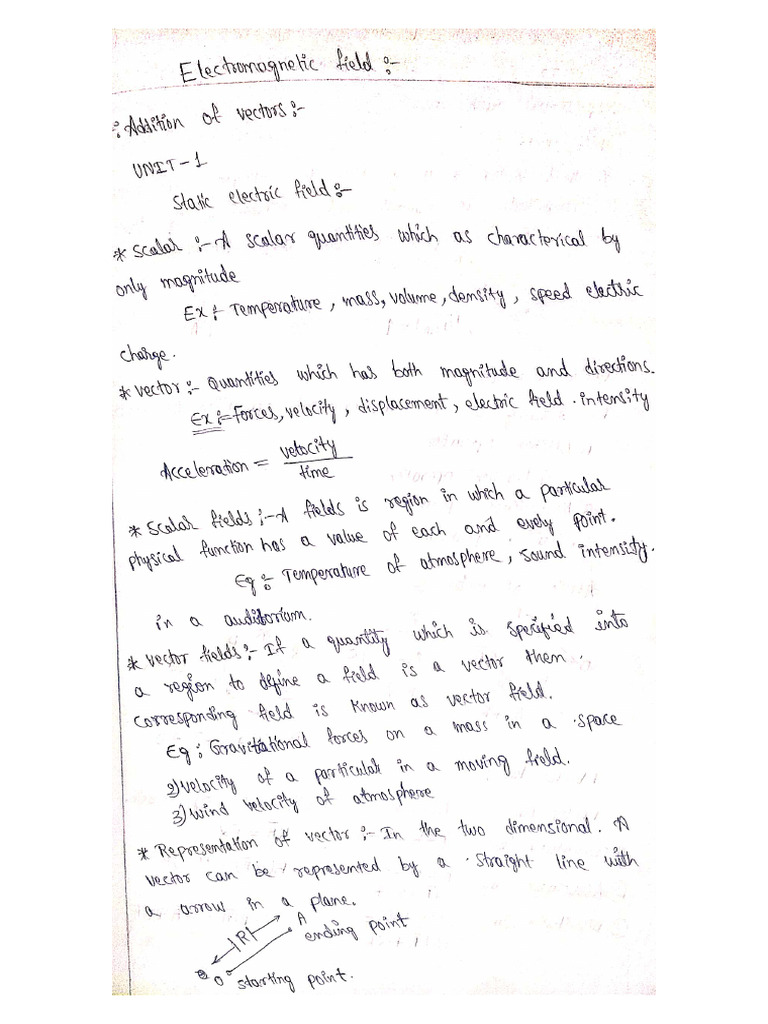 Electromagnetic field :-
: Addition of vectors :-
UNIT-1
Static electric field :-
* Scalar :- A scalar quantities which as characterical by
only magnitude
Ex :- Temperature, mass, volume, density, speed electric
charge.
* vector :- Quantities which has both magnitude and directions.
Ex :- Forces, velocity, displacement, electric field. intensity
Acceleration = velocity / time
* Scalar fields :- A fields is region in which a particular
physical function has a value of each and every point.
Eg :- Temperature of atmosphere, sound intensity.
in a auditorium.
* vector fields :- If a quantity which is specified into
a region to define a field is a vector them.
corresponding field is known as vector field.
Eg : Gravitational forces on a mass in a space
2) velocity of a particular in a moving field.
3) wind velocity of atmosphere
* Representation of vector :- In the two dimensional. A
vector can be represented by a straight line with
a arrow in a plane.
|R| A
ending point
O starting point.